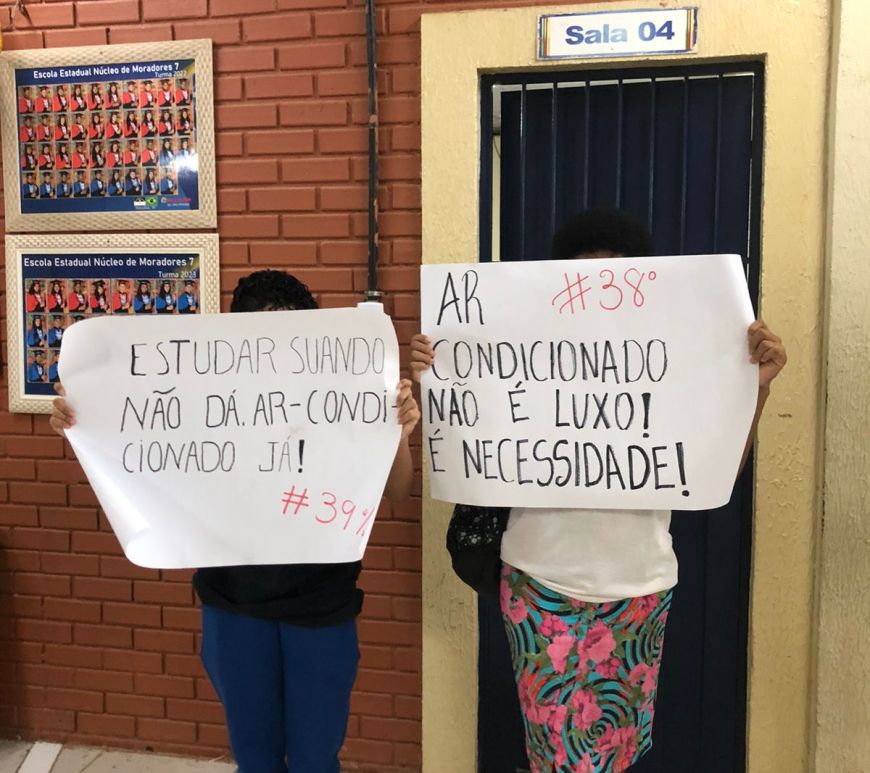 Sala 04
Escola Estadual Núcleo de Moradores 7
Turma 2022
Escola Estadual Núcleo de Moradores 7
Turma 2023
ESTUDAR SUANDO
NÃO DÁ. AR-CONDI-
CIONADO JÁ!
#39%
AR #38°
CONDICIONADO
NÃO É LUXO!
É NECESSIDADE!